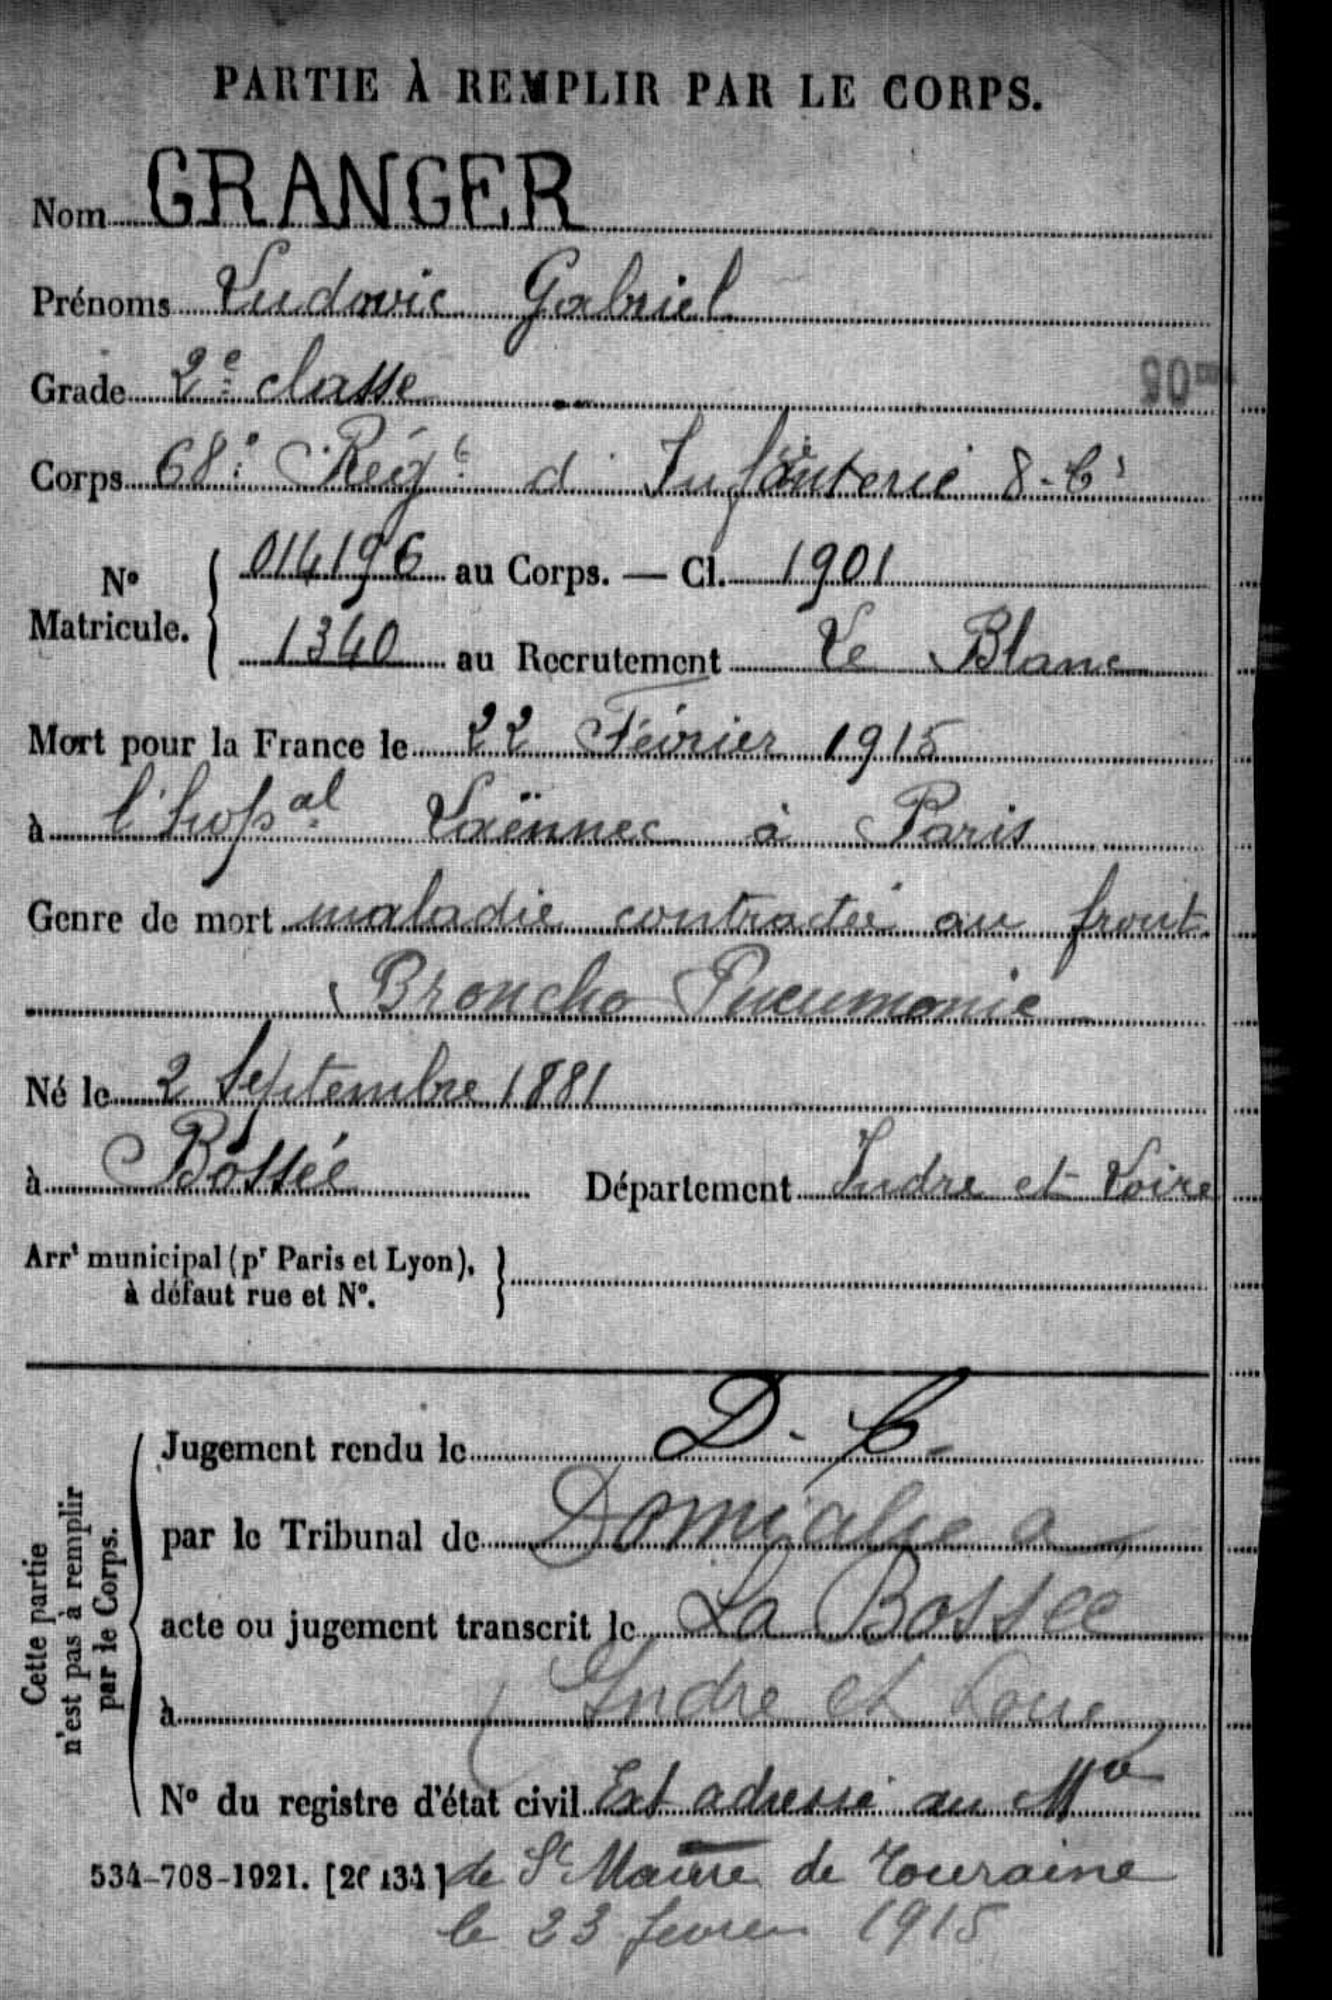 PARTIE À REMPLIR PAR LE CORPS.
Nom GRANGER
Prénoms Ludovic Gabriel
Grade 2e classe
Corps 68e Régt d'Infanterie 8e Cie
No Matricule. 014196 au Corps. — Cl. 1901
1340 au Recrutement Le Blanc
Mort pour la France le 22 Février 1915
à l'hopal Laënnec à Paris
Genre de mort maladie contractée au front
Broncho Pneumonie
Né le 2 Septembre 1881
à Bossée Département Indre et Loire
Arrt municipal (pr Paris et Lyon),
à défaut rue et No.
Cette partie
n'est pas à remplir
par le Corps.
Jugement rendu le D. C.
par le Tribunal de Domicilie a
acte ou jugement transcrit le La Bossee
à Indre et Loire
No du registre d'état civil Ext adressé au Me
534-708-1921. [26434] de St Maure de Touraine
le 23 fevrier 1915